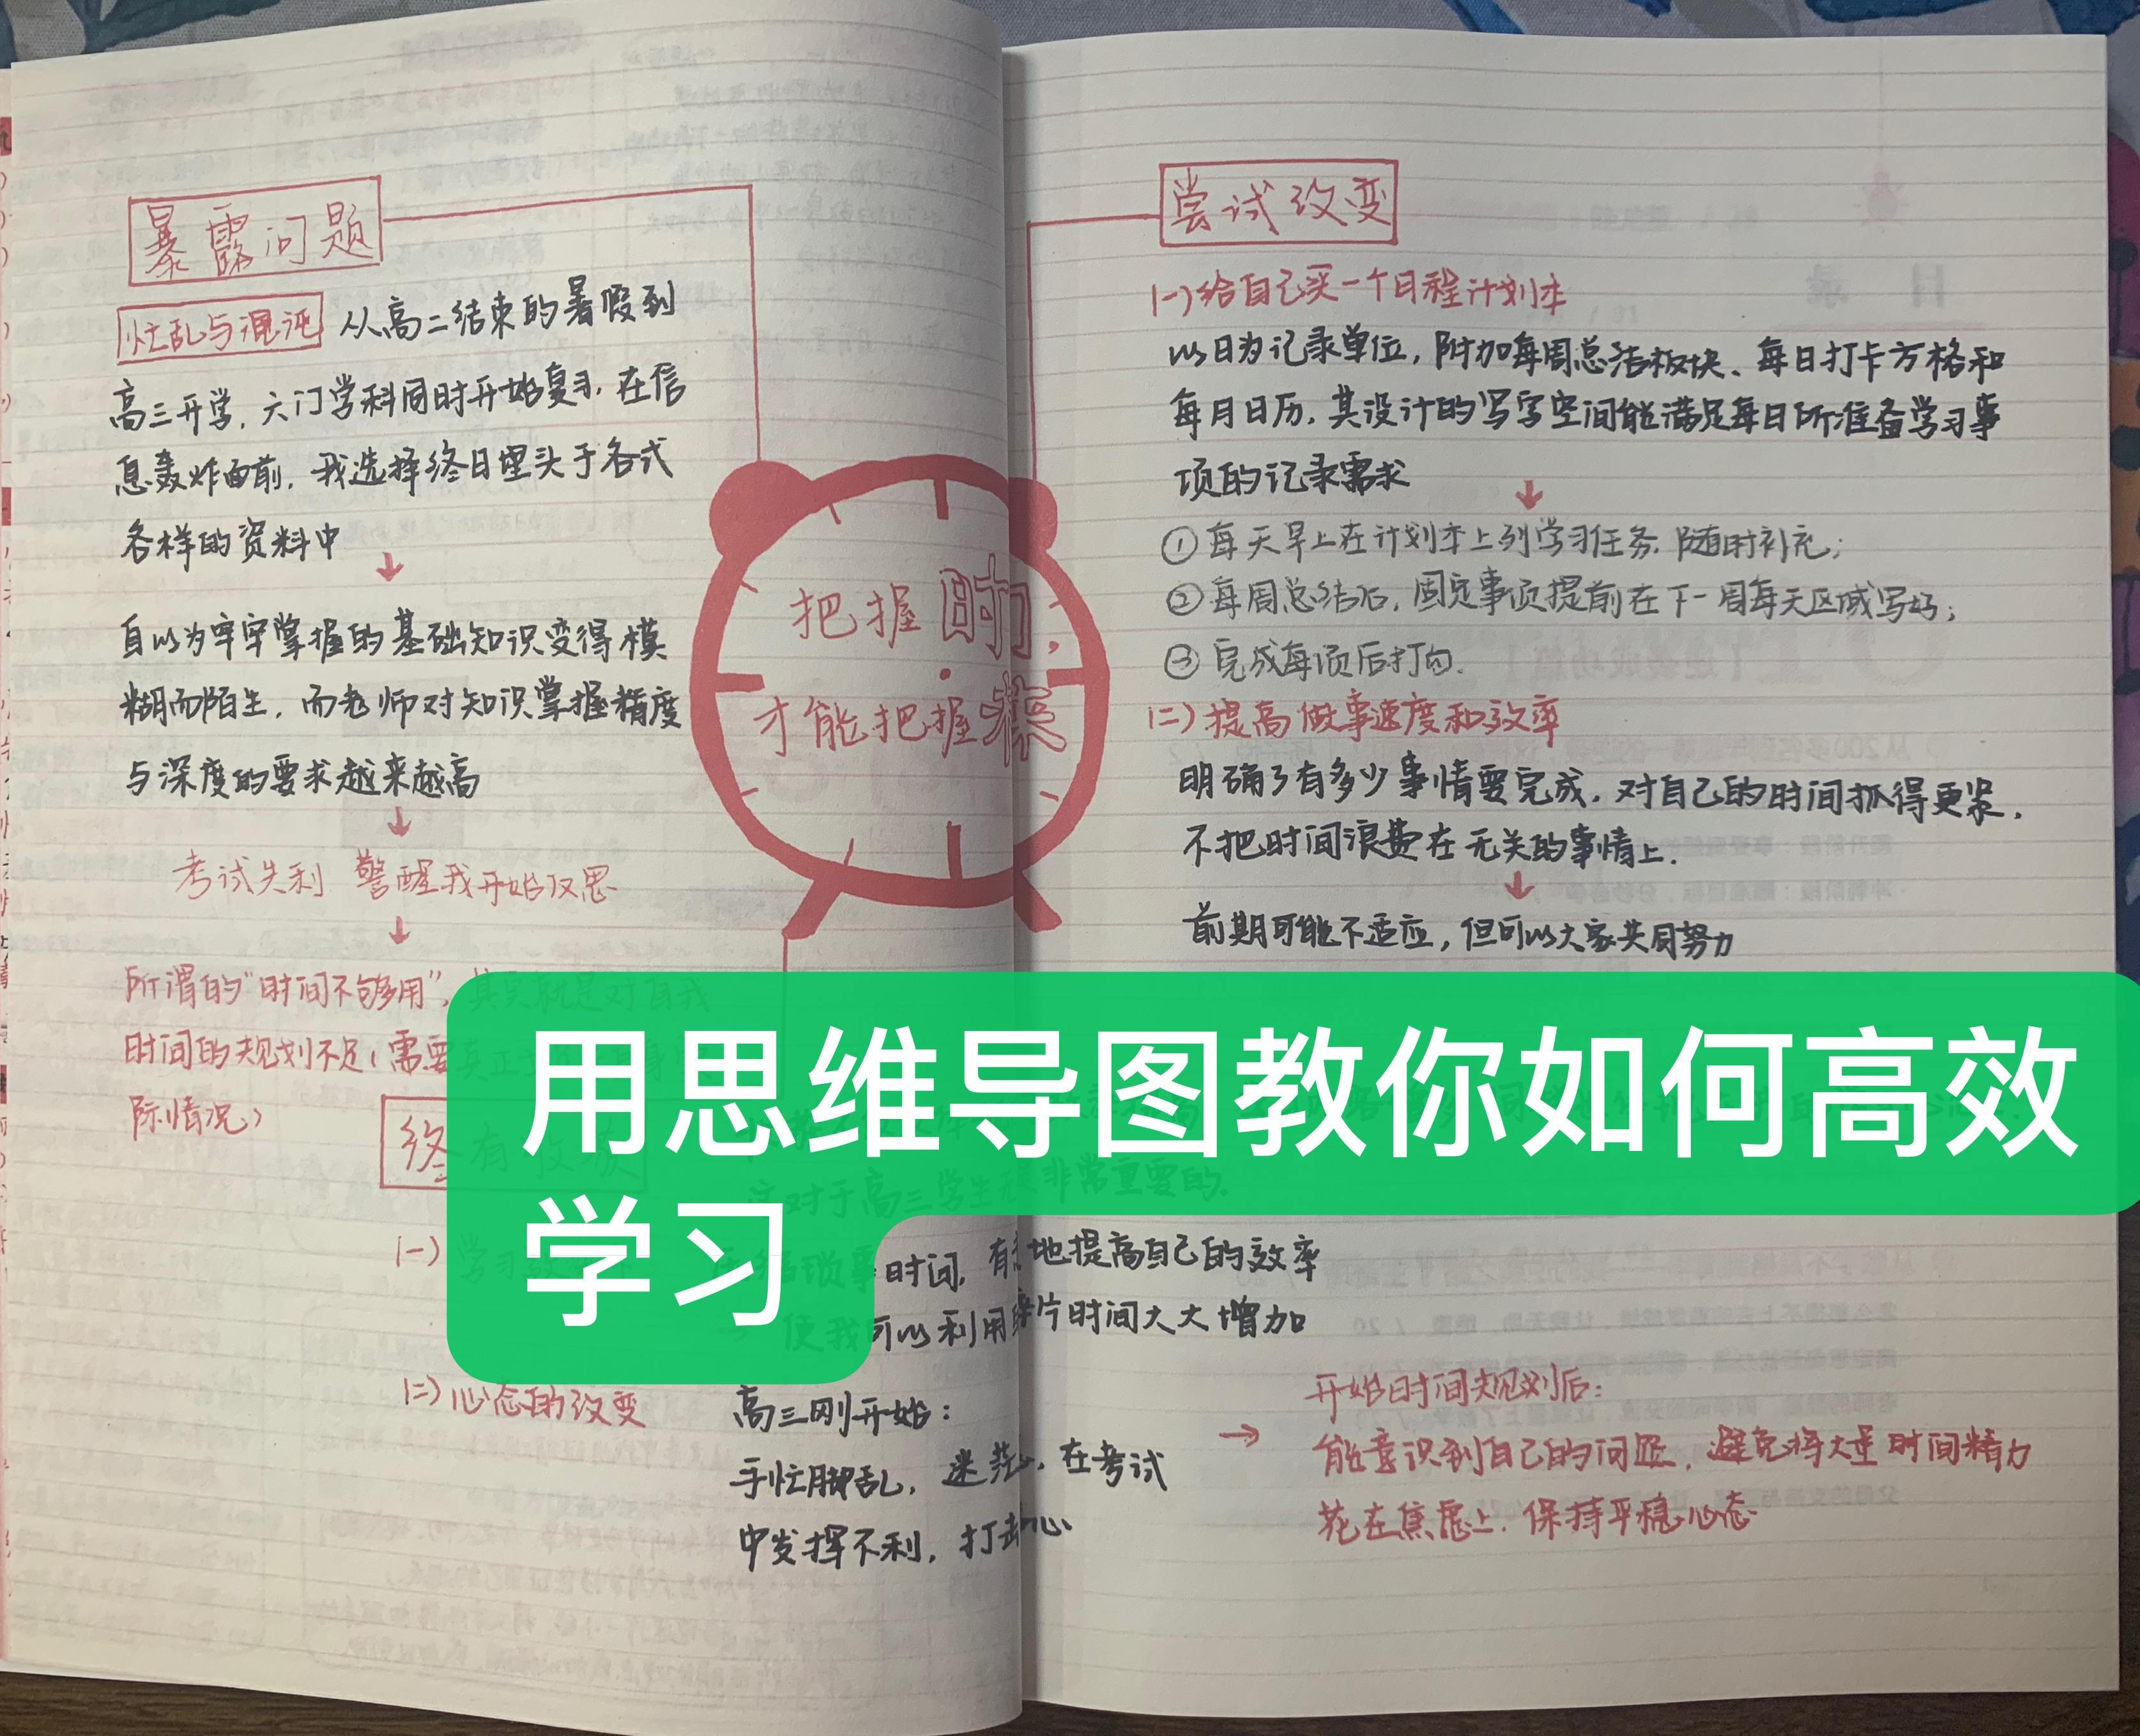 暴露问题
忙乱与混沌 从高二结束的暑假到
高三开学，六门学科同时开始复习，在信
息轰炸面前，我选择终日埋头于各式
各样的资料中
↓
自以为牢牢掌握的基础知识变得模
糊而陌生，而老师对知识掌握精度
与深度的要求越来越高
↓
考试失利 警醒我开始反思
↓
所谓的“时间不够用”，其实就是对自我
时间的规划不足（需要真正
际情况）
把握时间，
才能把握
尝试改变
(一)给自己买一个日程计划本
以日为记录单位，附加每周总结板块、每日打卡方格和
每月日历，其设计的写字空间能满足每日所准备学习事
项的记录需求
↓
①每天早上在计划本上列学习任务，随时补充；
②每周总结后，固定事项提前在下一周每天区域写好；
③完成每项后打勾.
(二)提高做事速度和效率
明确了有多少事情要完成，对自己的时间抓得更紧，
不把时间浪费在无关的事情上.
↓
前期可能不适应，但可以大家共同努力
用思维导图教你如何高效
学习
终有收获
对于高三学生是非常重要的.
(一)学习
时间，有 地提高自己的效率
→ 使我可以利用碎片时间大大增加
(二)心态的改变
高三刚开始：
手忙脚乱，迷茫，在考试
中发挥不利，打击心
→
开始时间规划后：
能意识到自己的问题，避免将大量时间精力
花在焦虑上，保持平稳心态